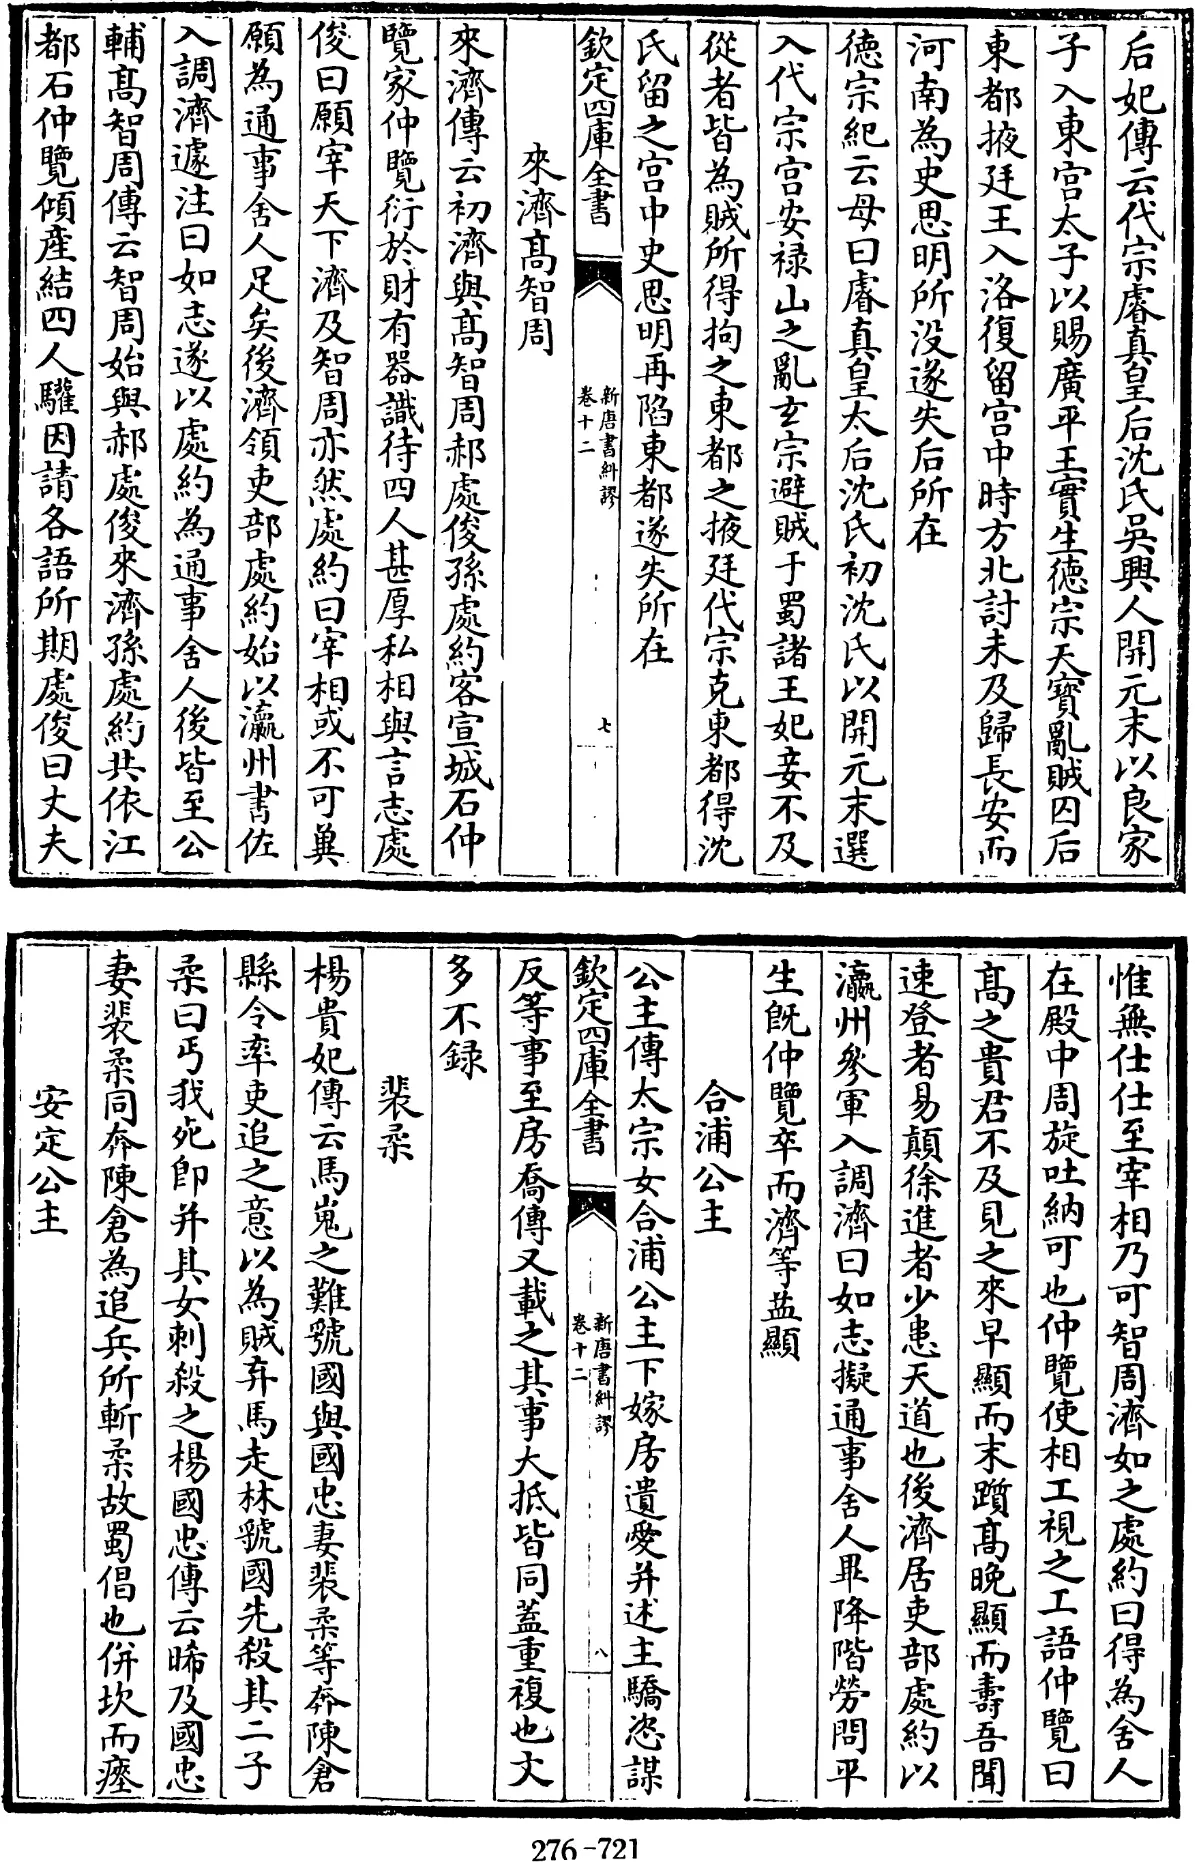 后妃傳云代宗睿真皇后沈氏吳興人開元末以良家
子入東宮太子以賜廣平王實生德宗天寶亂賊囚后
東都掖廷王入洛復留宮中時方北討未及歸長安而
河南為史思明所没遂失后所在
德宗紀云母曰睿真皇太后沈氏初沈氏以開元末選
入代宗宮安禄山之亂玄宗避賊于蜀諸王妃妾不及
從者皆為賊所得拘之東都之掖廷代宗克東都得沈
氏留之宮中史思明再陷東都遂失所在
欽定四庫全書
新唐書糾謬
卷十二
七
來濟高智周
來濟傳云初濟與高智周郝處俊孫處約客宣城石仲
覽家仲覽衍於財有器識待四人甚厚私相與言志處
俊曰願宰天下濟及智周亦然處約曰宰相或不可冀
願為通事舍人足矣後濟領吏部處約始以瀛州書佐
入調濟遽注曰如志遂以處約為通事舍人後皆至公
輔髙智周傳云智周始與郝處俊來濟孫處約共依江
都石仲覽傾産結四人驩因請各語所期處俊曰丈夫
惟無仕仕至宰相乃可智周濟如之處約曰得為舍人
在殿中周旋吐納可也仲覽使相工視之工語仲覽曰
髙之貴君不及見之來早顯而末躓髙晚顯而壽吾聞
速登者易顛徐進者少患天道也後濟居吏部處約以
瀛州參軍入調濟曰如志擬通事舍人畢降階勞問平
生既仲覽卒而濟等益顯
合浦公主
公主傳太宗女合浦公主下嫁房遺愛并述主驕恣謀
欽定四庫全書
新唐書糾謬
卷十二
八
反等事至房喬傳又載之其事大抵皆同蓋重複也文
多不録
裴柔
楊貴妃傳云馬嵬之難虢國與國忠妻裴柔等奔陳倉
縣令率吏追之意以為賊弃馬走林虢國先殺其二子
柔曰丐我死卽并其女刺殺之楊國忠傳云晞及國忠
妻裴柔同奔陳倉為追兵所斬柔故蜀倡也併坎而瘞
安定公主
276-721